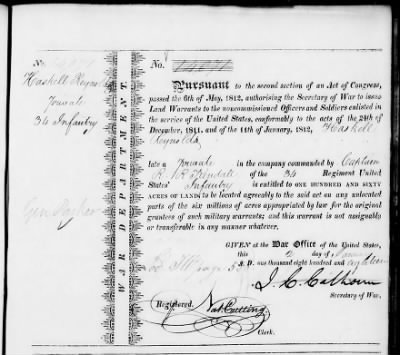 No.
Haskell Reynolds
Private
34 Infantry
WAR DEPARTMENT.
No.
PURSUANT to the second section of an Act of Congress,
passed the 6th of May, 1812, authorising the Secretary of War to issue
Land Warrants to the noncommissioned Officers and Soldiers enlisted in
the service of the United States, conformably to the acts of the 24th of
December, 1811, and of the 11th of January, 1812, Haskell
Reynolds
late a Private in the company commanded by Captain
of the 34 Regiment United
States' Infantry is entitled to ONE HUNDRED AND SIXTY
ACRES OF LAND; to be located agreeably to the said act on any unlocated
parts of the six millions of acres appropriated by law for the original
grantees of such military warrants; and this warrant is not assignable
or transferable in any manner whatever.
GIVEN at the War Office of the United States,
this day of
A. D. one thousand eight hundred and eighteen
J. C. Calhoun
Secretary of War.
Registered. Nat. Cutting
Clerk.